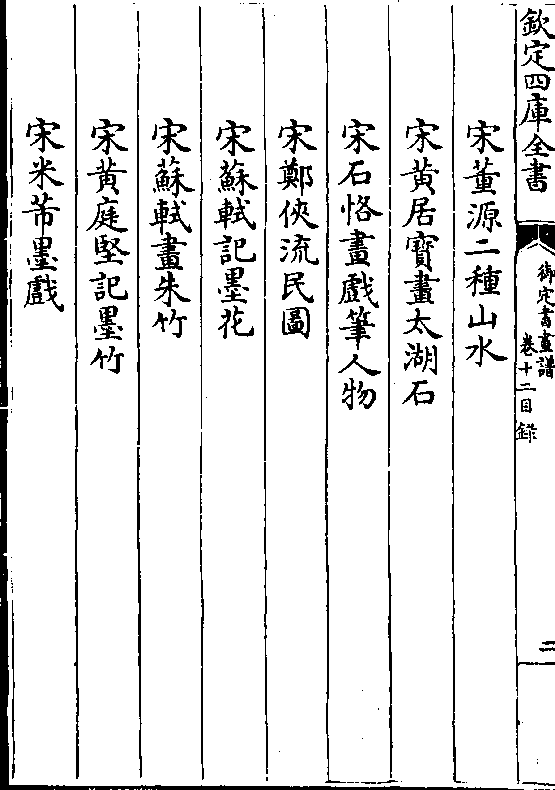 欽定四庫全書
御定書畫譜
卷十二目錄
二
宋董源二種山水
宋黄居寶畫太湖石
宋石恪畫戲筆人物
宋鄭俠流民圖
宋蘇軾記墨花
宋蘇軾畫朱竹
宋黄庭堅記墨竹
宋米芾墨戲